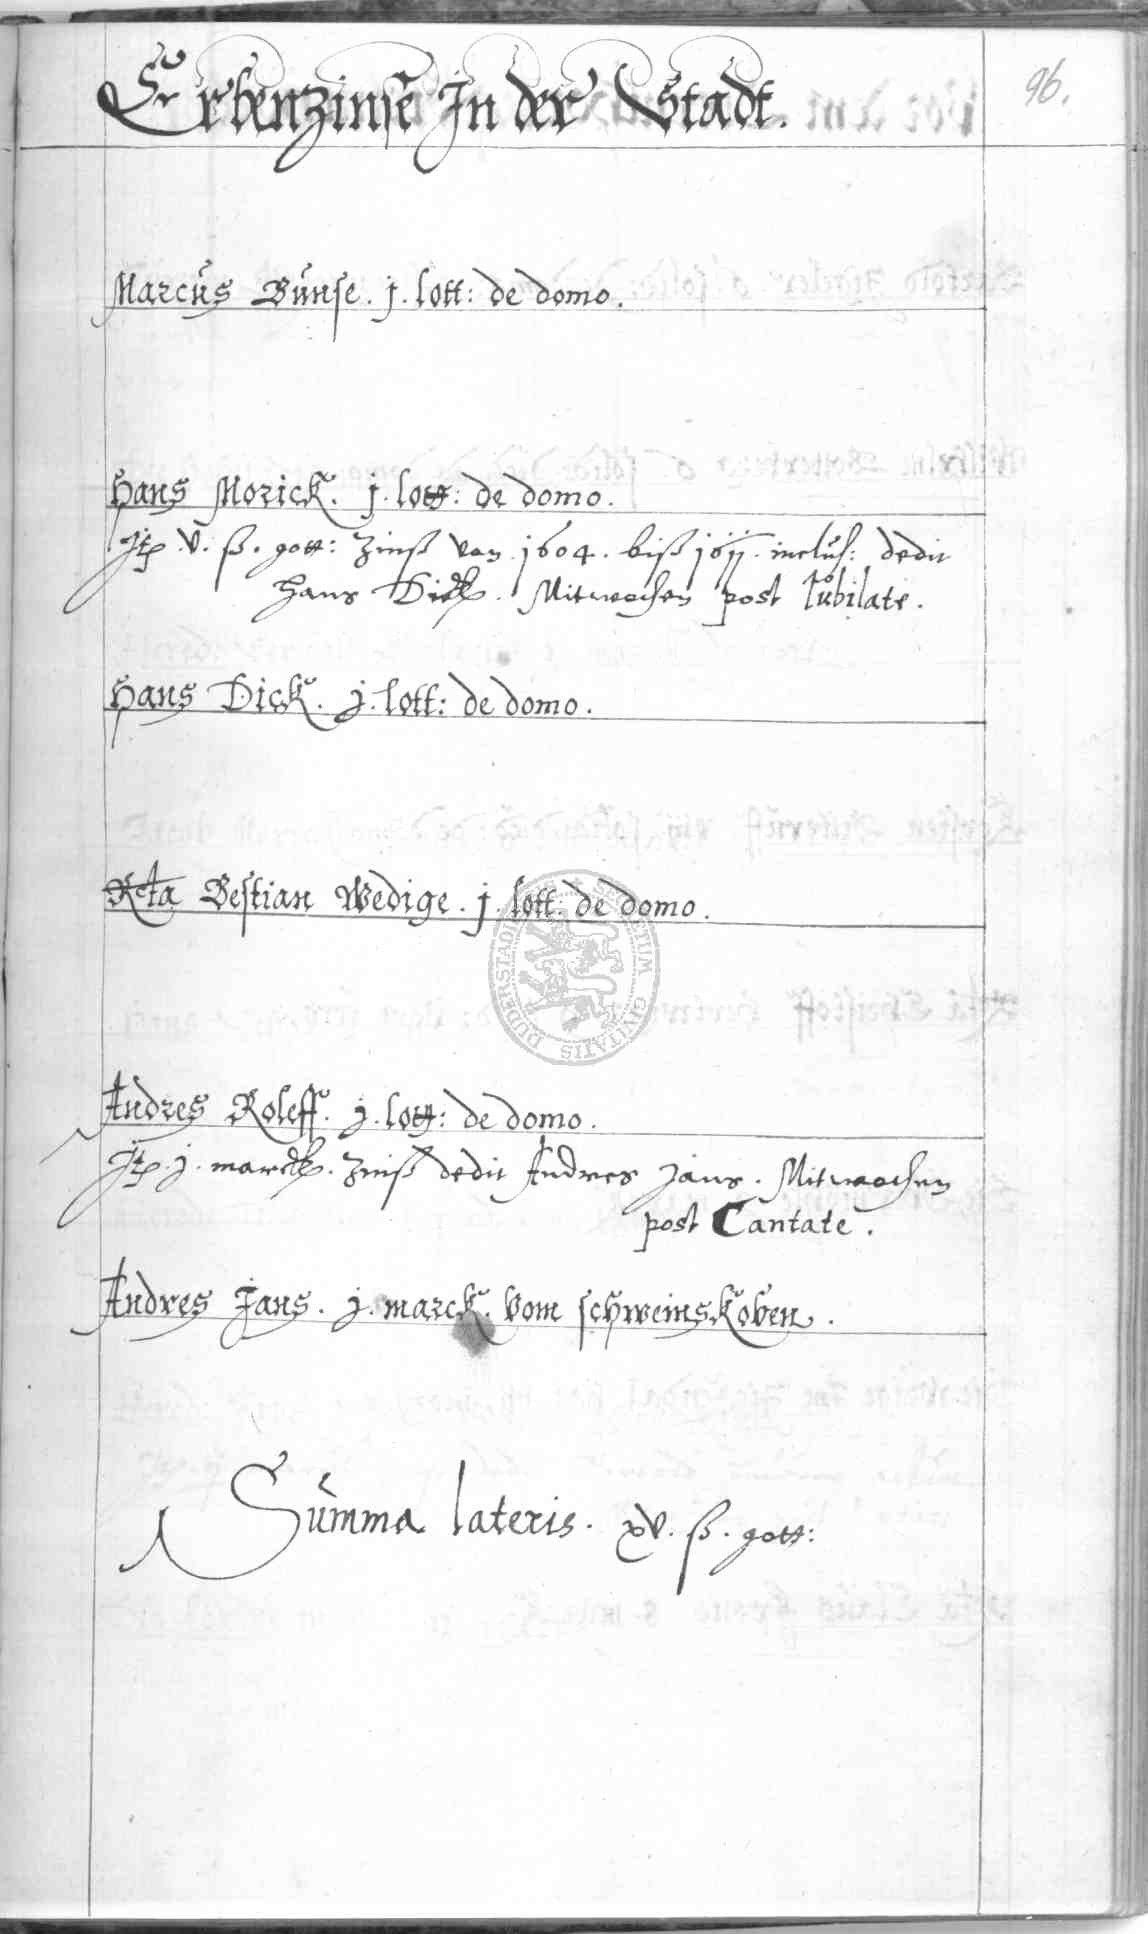 96.
Erbenzinse In der Stadt.
Marcus Bunse. j. lott: de domo.
Hans Morick. j. lott: de domo.
Itp. v. ß. gott: Zinß van 1604. biß 1611. inclus: dedit
Hans Dick. Mitwochen post Iubilate.
Hans Dick. j. lott: de domo.
Rcta Bestian Wedige. j. lott: de domo.
Andres Roleff. j. lott: de domo.
Itp. j. marck. Zinß dedit Andres Jans. Mitwochen
post Cantate.
Andres Jans. j. marck. vom schweinskoven.
Summa lateris. xv. ß. gott:
SECRETUM CIVITATIS DUDERSTADIENSIS